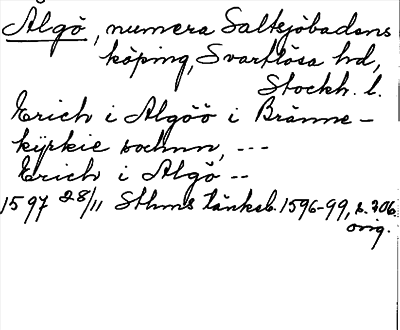 Älgö, numera Saltsjöbadens
köping, Svartlösa hd,
Stockh. l.
Erich i Algöö i Bränne-
kyrkie sochnn, ---
Erich i Algö --
1597 28/11 Sthms tänkeb. 1596-99, s. 706.
orig.